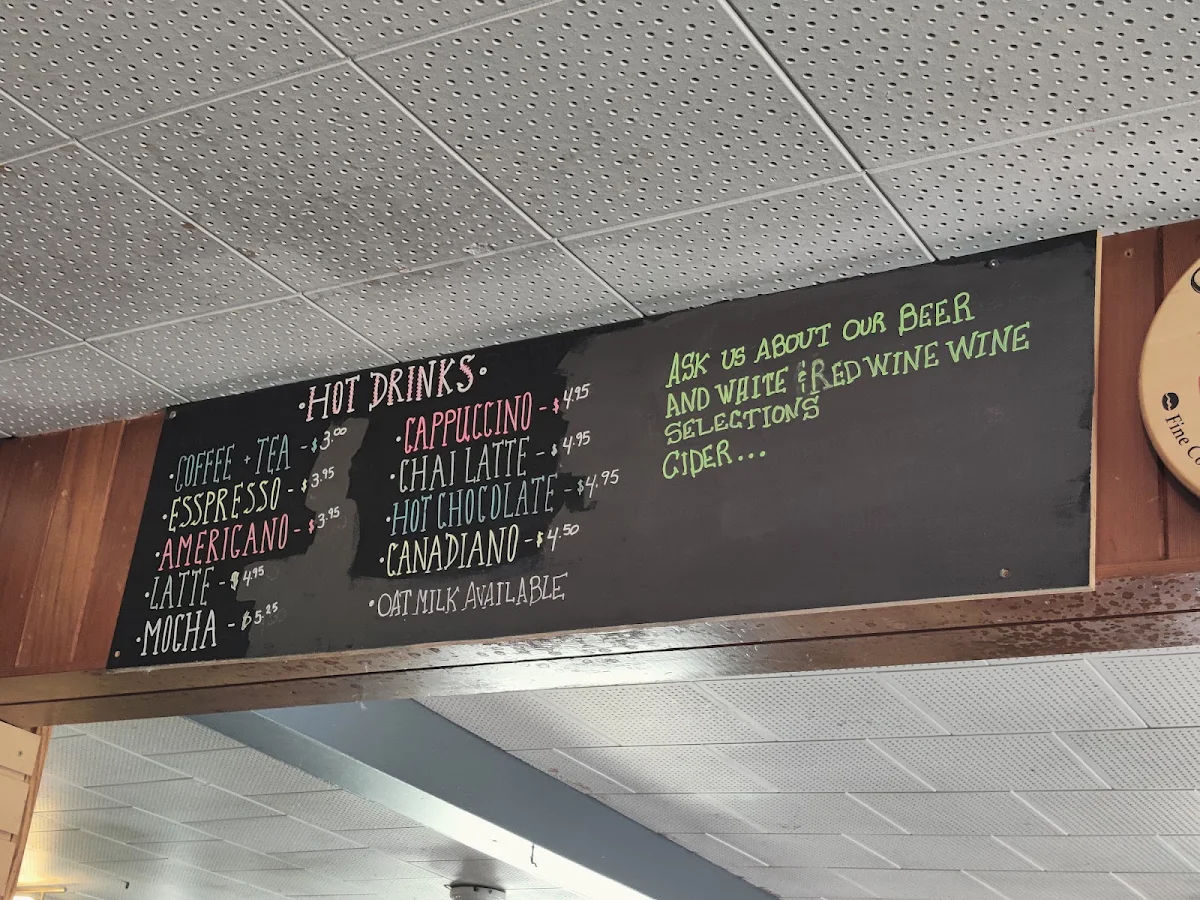 ·HOT DRINKS·
·COFFEE + TEA - $3.00
·ESSPRESSO - $3.95
·AMERICANO - $3.95
·LATTE - $4.95
·MOCHA - $5.25
·CAPPUCCINO - $4.95
·CHAI LATTE - $4.95
·HOT CHOCOLATE - $4.95
·CANADIANO - $4.50
·OAT MILK AVAILABLE
ASK US ABOUT OUR BEER
AND WHITE & RED WINE WINE
SELECTIONS
CIDER...
Fine